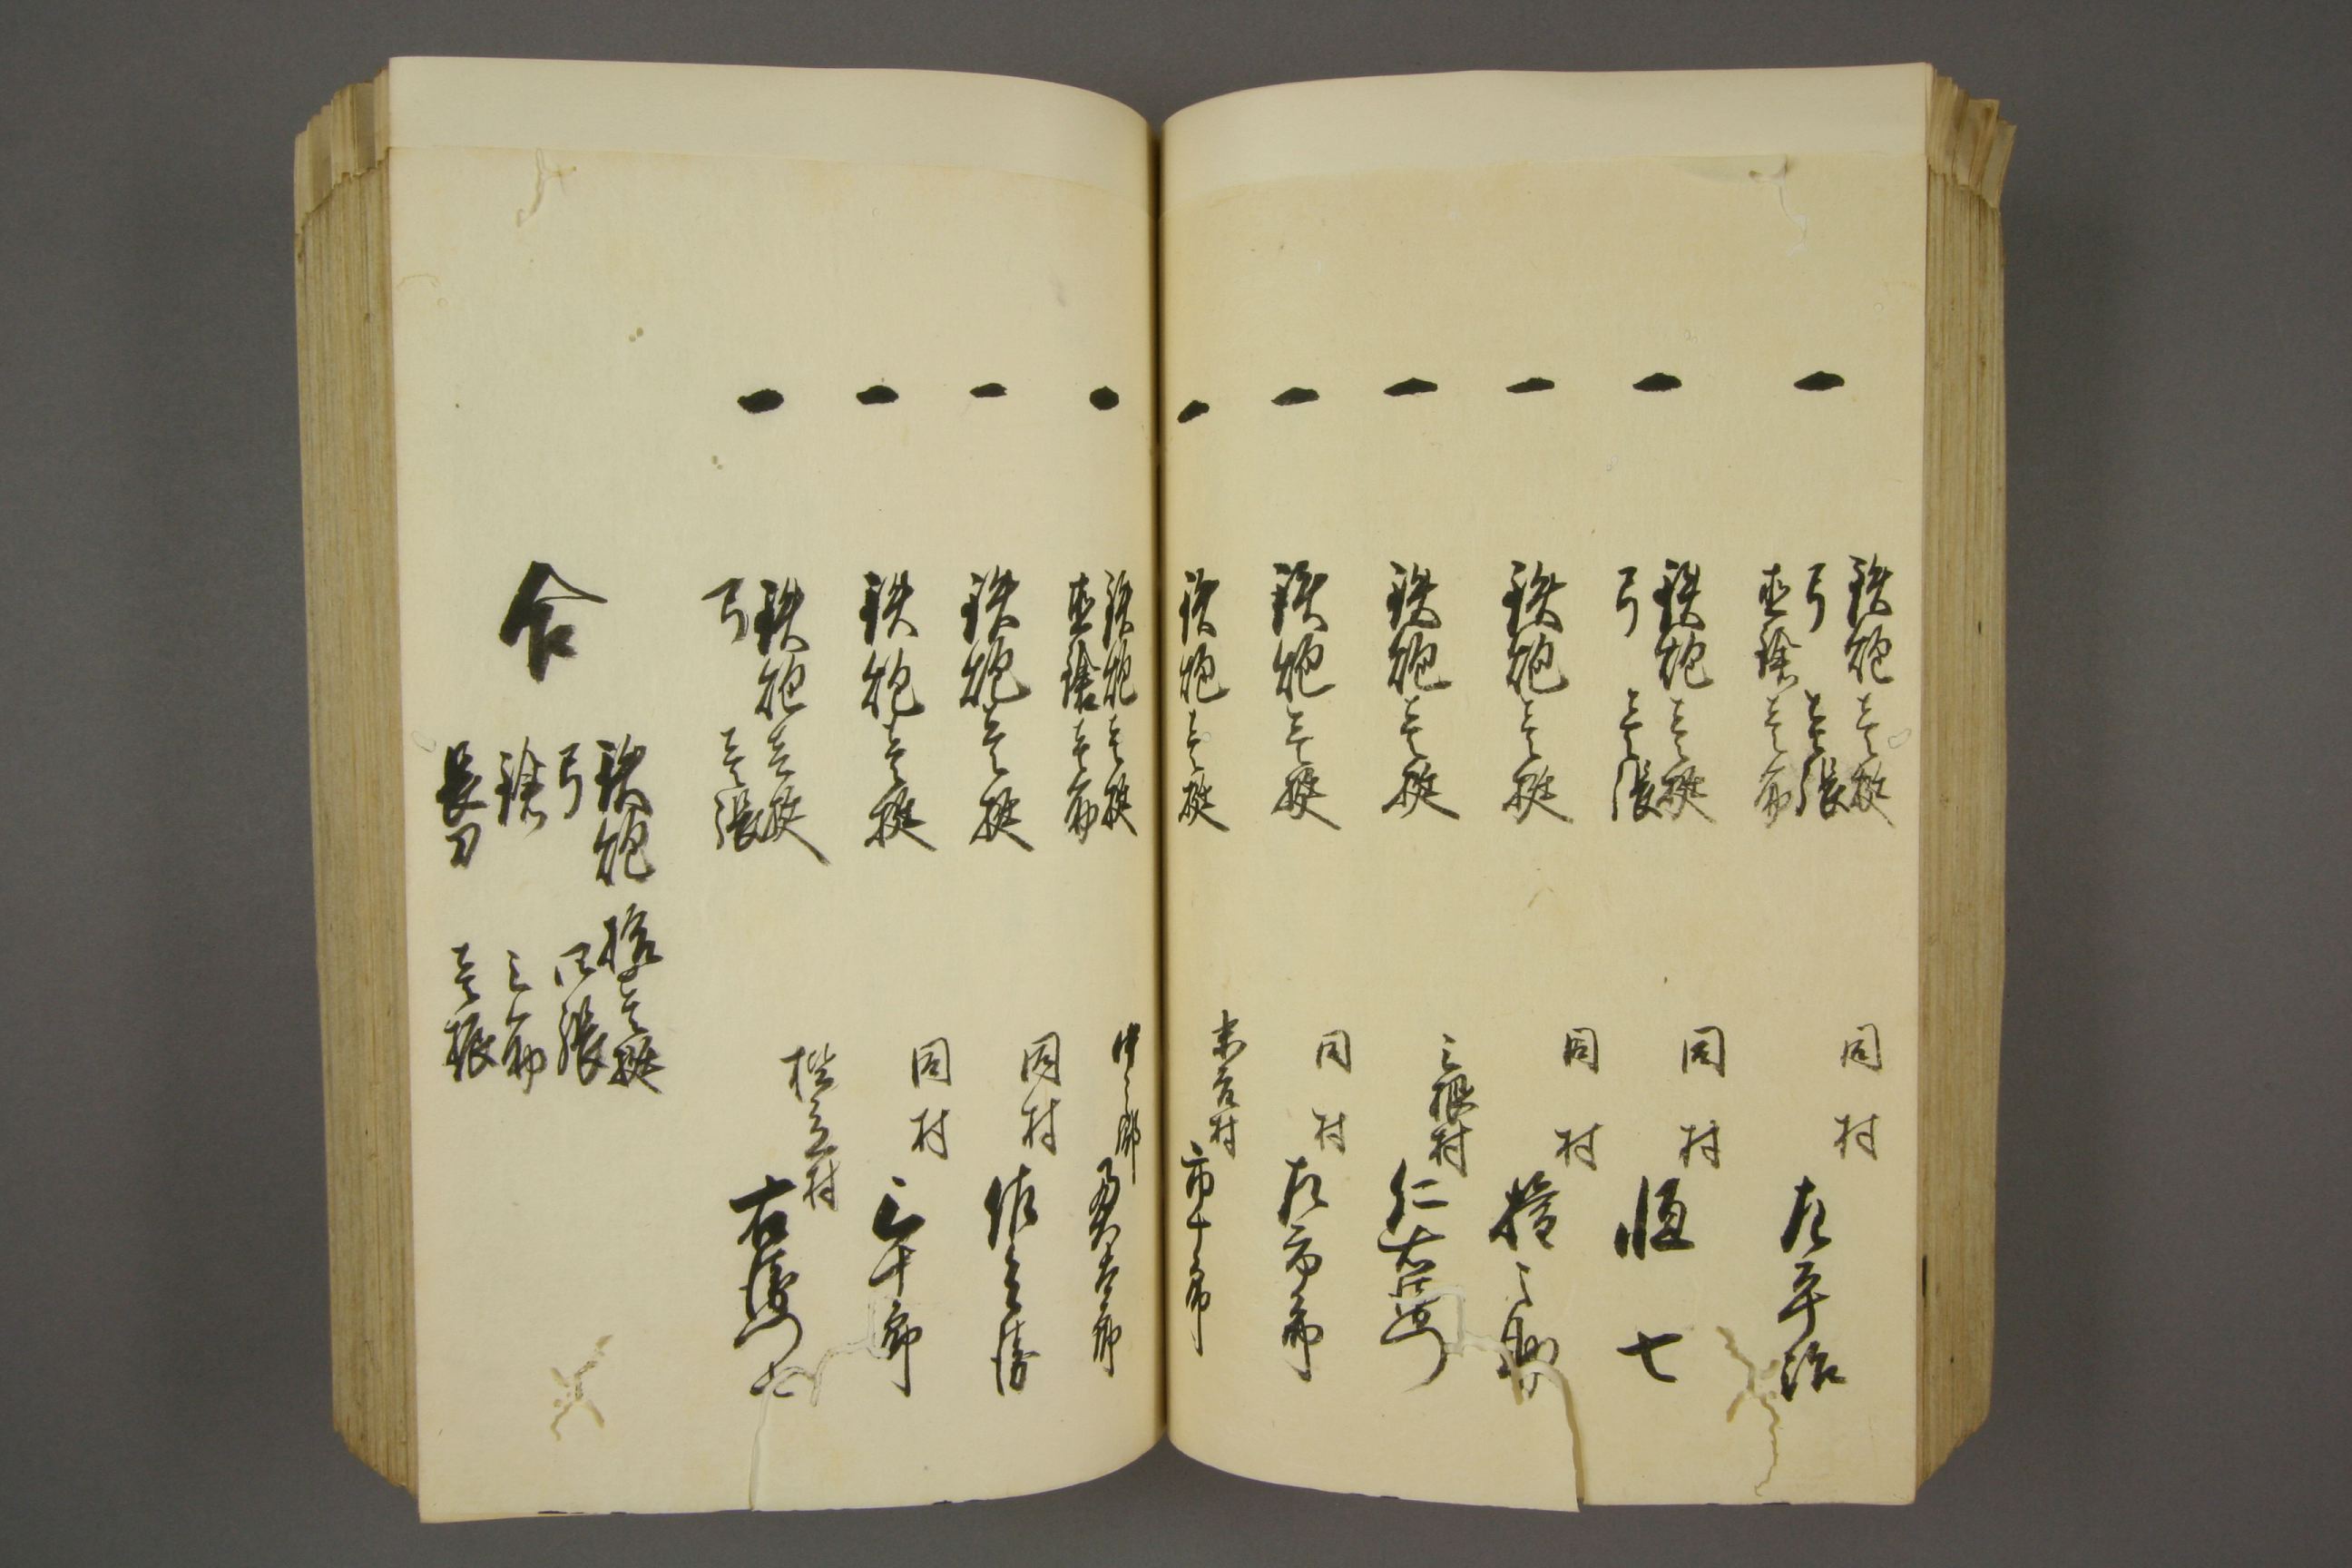 一 鉄炮壱挺
弓 壱張
直鎗壱筋
同村
左平治
一 鉄炮壱挺
弓 壱張
同村
恒七
一 鉄炮壱挺
同村
権之助
一 鉄炮壱挺
三根村
仁右衛門
一 鉄炮壱挺
同村
左市郎
一 鉄炮壱挺
末吉村
市十郎
一 鉄炮壱挺
直鎗壱筋
中之郷
一 鉄炮壱挺
同村
佐之清
一 鉄炮壱挺
同村
三十郎
一 鉄炮壱挺
弓 壱張
樫立村
右衛門七
合
鉄炮 拾壱挺
弓 四張
鎗 三筋
長刀 壱振